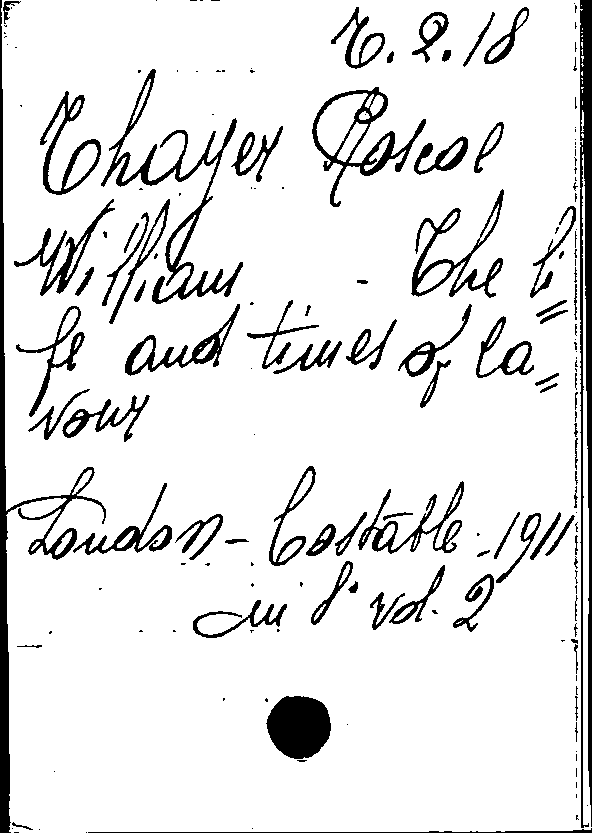 T. 2. 18
Thayer Roscoe
William - The li=
fe and times of Ca=
vour
London - Costable - 1911
in 8° vol. 2